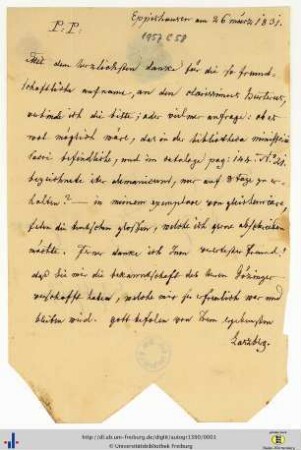 P. P.
Eppishausen am 26 märz 1831.
1957 C 58
Mit dem herzlichsten danke für die so freund-
schaftliche aufname, an den clarissimus
verbinde ich die bitte; oder vielmer anfrage: ob es
wol möglich wäre, das in der bibliotheca ministerii
sacri befindliche, und im cataloge pag: 144.
bezeichnete alte manuscript, nur auf 8 tage zu er-
halten? — in meinem exemplare von
felen die deutschen glossen, welche ich gerne abschreiben
möchte. Ferner danke ich Inen verertester freund!
daß Sie mir die bekanntschaft des herrn Götzinger
verschafft haben, welche mir so erfreulich war und
bleiben wird. gott befolen von Irem ergebensten
Laszbg.
http://dl.ub.uni-freiburg.de/diglit/autogr1580/0001
© Universitätsbibliothek Freiburg